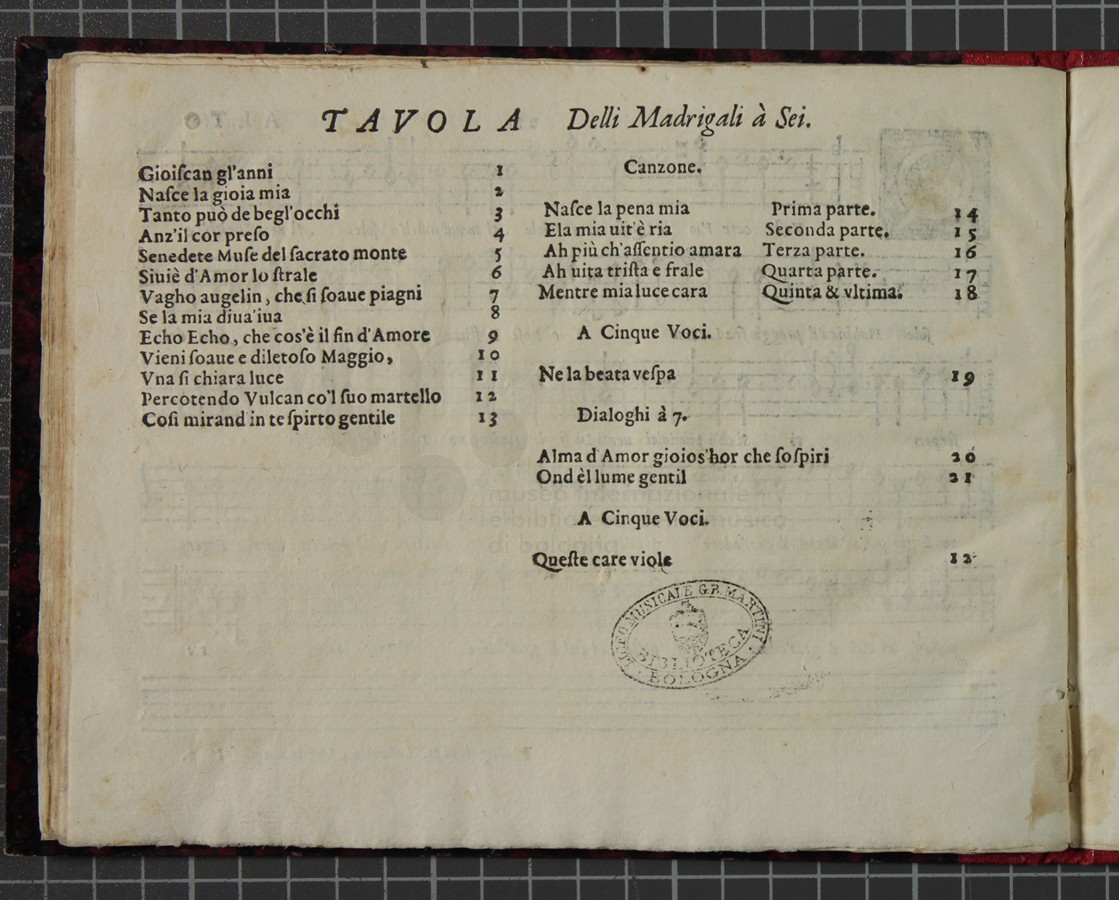 TAVOLA Delli Madrigali à Sei.
Gioiſcan gl'anni 1
Naſce la gioia mia 2
Tanto può de begl'occhi 3
Anz'il cor preſo 4
Senedete Muſe del ſacrato monte 5
Siuiè d'Amor lo ſtrale 6
Vagho augelin, che ſi ſoaue piagni 7
Se la mia diua'iua 8
Echo Echo, che cos'è il fin d'Amore 9
Vieni ſoaue e diletoſo Maggio, 10
Vna ſi chiara luce 11
Percotendo Vulcan co'l ſuo martello 12
Coſi mirand in te ſpirto gentile 13
Canzone.
Naſce la pena mia Prima parte. 14
Ela mia uit'è ria Seconda parte. 15
Ah più ch'aſſentio amara Terza parte. 16
Ah uita triſta e frale Quarta parte. 17
Mentre mia luce cara Quinta & vltima. 18
A Cinque Voci.
Ne la beata veſpa 19
Dialoghi à 7.
Alma d'Amor gioios'hor che ſoſpiri 20
Ond èl lume gentil 21
A Cinque Voci.
Queſte care viole 12
LICEO MUSICALE G.B. MARTINI
BIBLIOTECA
BOLOGNA
museo internazionale
e biblioteca della musica
di bologna